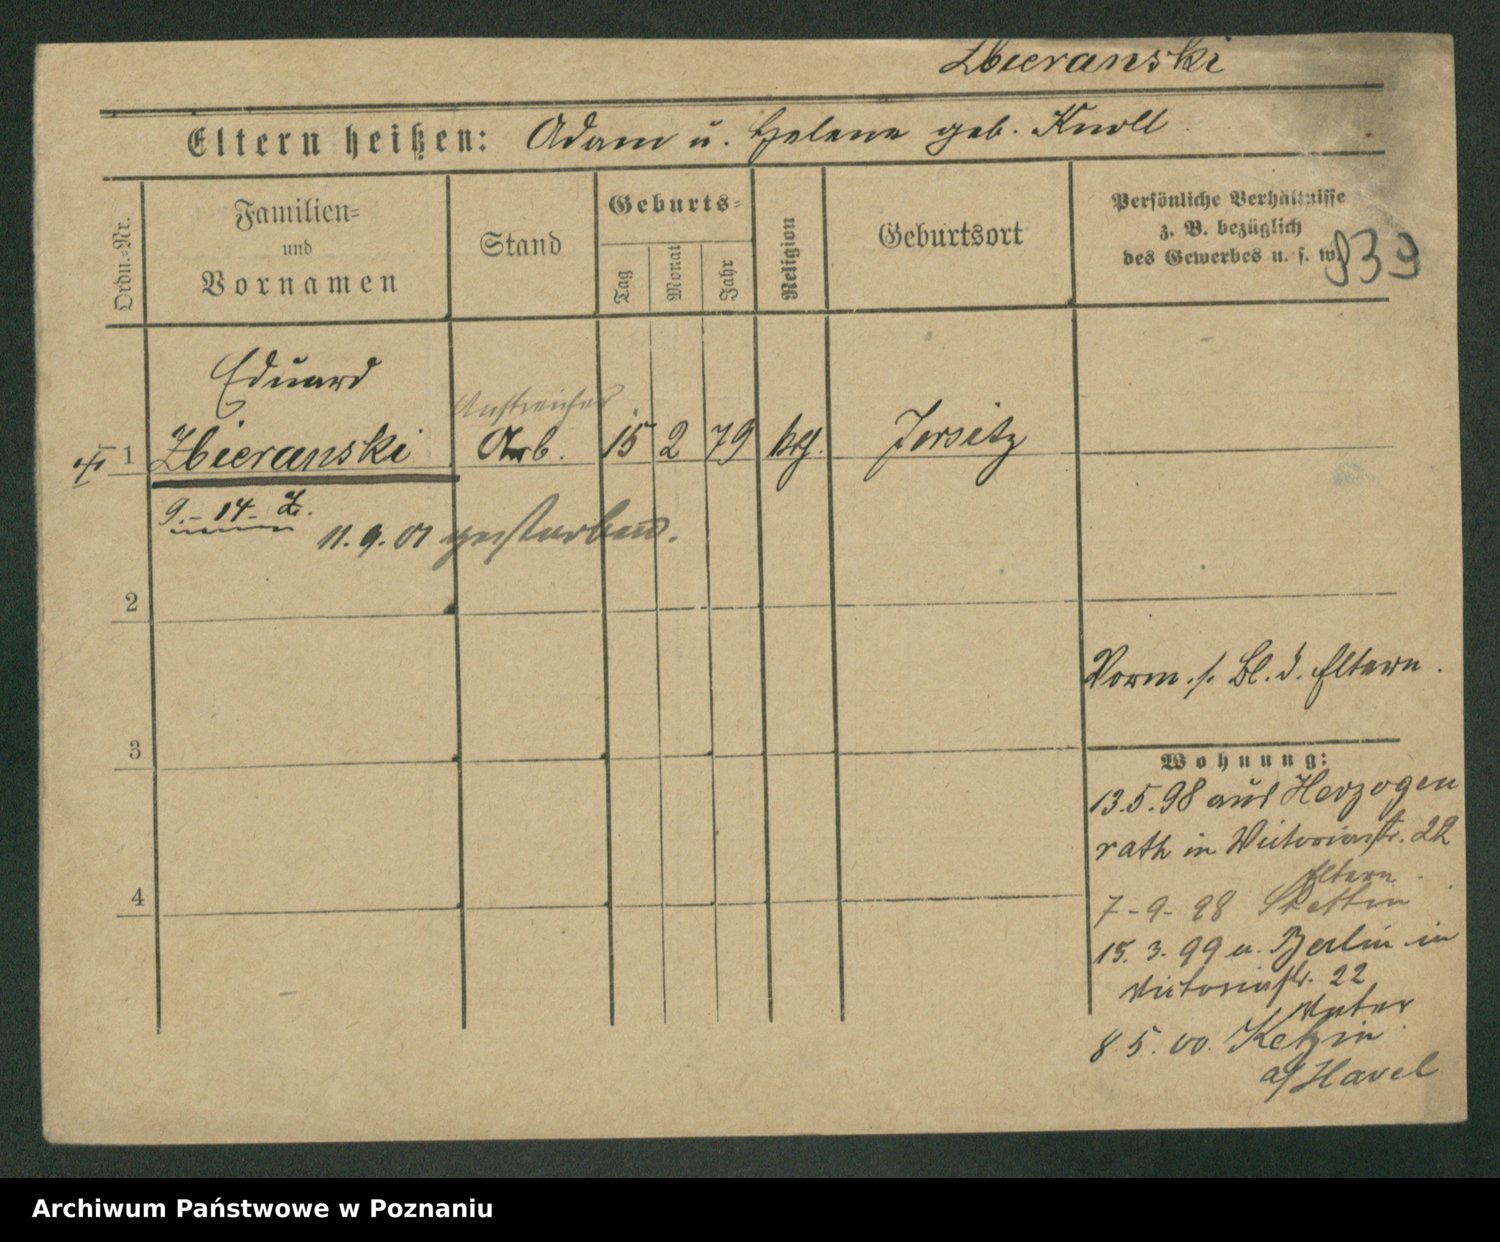 Zbieranski
Eltern heißen: Adam u. Helene geb. Knoll
Ordn.-Nr.
Familien-
und
Vornamen
Stand
Geburts-
Tag
Monat
Jahr
Religion
Geburtsort
Persönliche Verhältnisse
z. B. bezüglich
des Gewerbes u. s. w.
939
Eduard
Anstreicher
1 Zbieranski Arb. 15 2 79 ktl. Jersitz
9. - 14 - Z.
11.9.01 gestorben.
2
Vorm. s. Bl. d. Eltern.
3
Wohnung:
13.5.98 aus Herzogen
rath in Victoriastr. 22
Eltern
4
7-9-98 Stettin
15.3.99 a. Berlin in
Victoriastr. 22
Vater
8.5.00. Ketzin
a/Havel
Archiwum Państwowe w Poznaniu